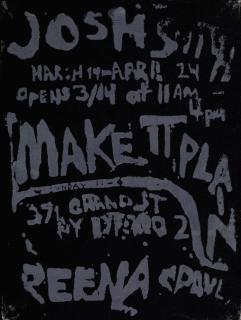 JOSH SMITH
MARCH 14-APRIL 24
OPENS 3/14 at 11AM
4pm
MAKE IT PLAIN
371 GRAND ST
NY NY 10002
REENA SPAUL